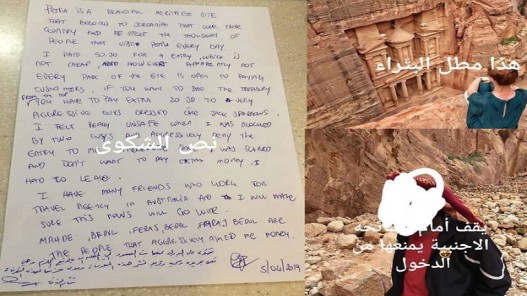 PETRA IS A BEAUTIFUL HERITAGE SITE
THAT BELONGS TO JORDANIA THAT LOVE THEIR
COUNTRY AND RESPECT THE THOUSANDS OF
PEOPLE THAT VISIT PETRA EVERY DAY.
I PAID 50 JD FOR A ENTRY, WHICH IS
NOT CHEAP, HOWEVER APPARENTLY NOT
EVERY PART OF THE SITE IS OPEN TO PAYING
CUSTOMERS. IF YOU WANT TO SEE THE TREASURY
FROM ON TOP
YOU HAVE TO PAY EXTRA JD TO VERY
AGGRESSIVE GUYS DRESSED LIKE JACK SPARROWS.
I FELT VERY UNSAFE WHEN I WAS BLOCKED
BY TWO GUYS AGGRESSIVELY DENY THE
ENTRY TO WAS SCARED
AND DON'T WANT TO PAY EXTRA MONEY. I
HAD TO LEAVE.
I HAVE MANY FRIENDS WHO WORK FOR
TRAVEL AGENCY IN AUSTRALIA AND I WILL MAKE
SURE THIS NEWS WILL GO WIDE.
BEDUL, FERAS BEDUL, BEDUL ARE
THE PEOPLE THAT AGGRESSIVELY ASKED ME MONEY.
5/04/2019
نص الشكوى
هذا مطل البتراء
يقف أمام السائحه
الاجنبية يمنعها من
الدخول